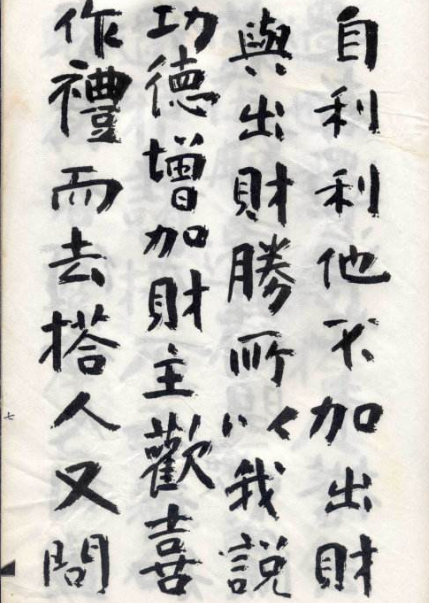 自利利他不加出財
與出財勝所以我説
功德增加財主歡喜
作禮而去搭人又問
七